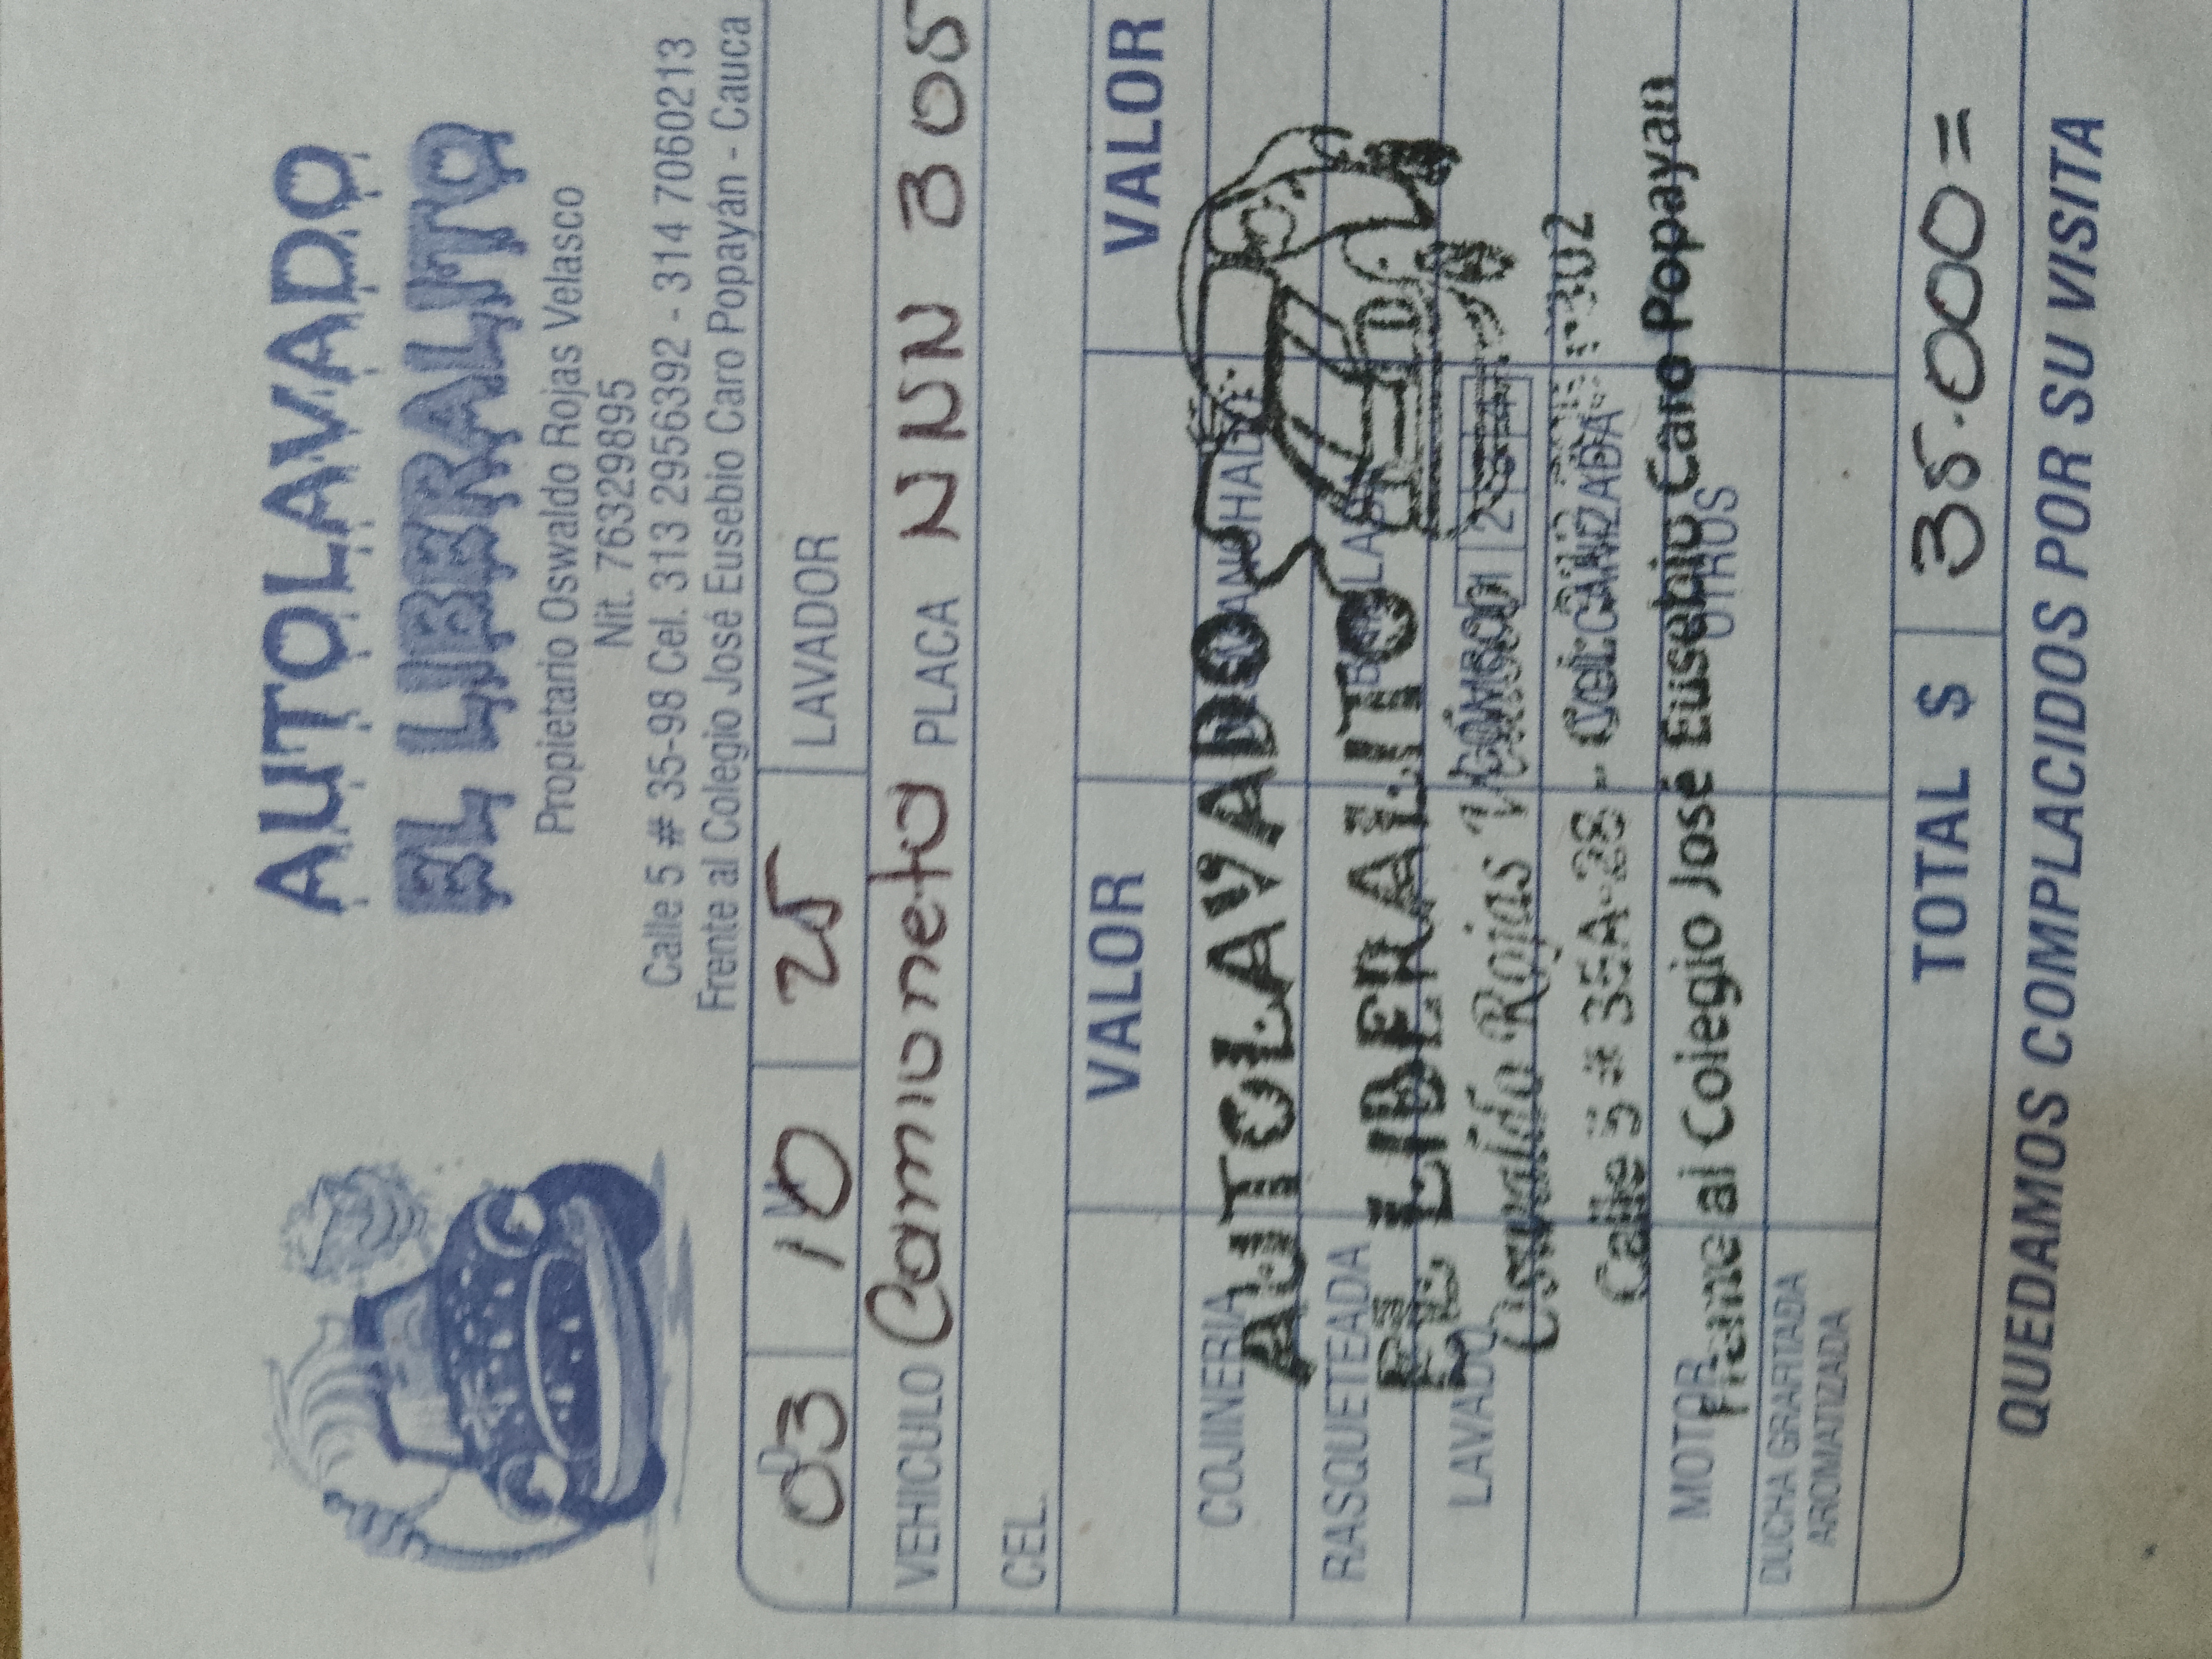 AUTOLAVADO
EL LIBERALITO
Propietario Oswaldo Rojas Velasco
Nit. 76329895
Calle 5 # 35-98 Cel. 313 2956392 - 314 7060213
Frente al Colegio José Eusebio Caro Popayán - Cauca
03 10 25 LAVADOR
VEHICULO Camioneta PLACA NNN 305
CEL.
VALOR VALOR
COJINERIA
RASQUETEADA
LAVADO COMBO 1 2 3 4
MOTOR OTROS
DUCHA GRAFITADA
AROMATIZADA
AUTOLAVADO
EL LIBERALITO
Oswaldo Rojas Velasco
Calle 5 # 35A-28 - Cel.
Frente al Colegio José Eusebio Caro Popayan
TOTAL $ 35.000=
QUEDAMOS COMPLACIDOS POR SU VISITA